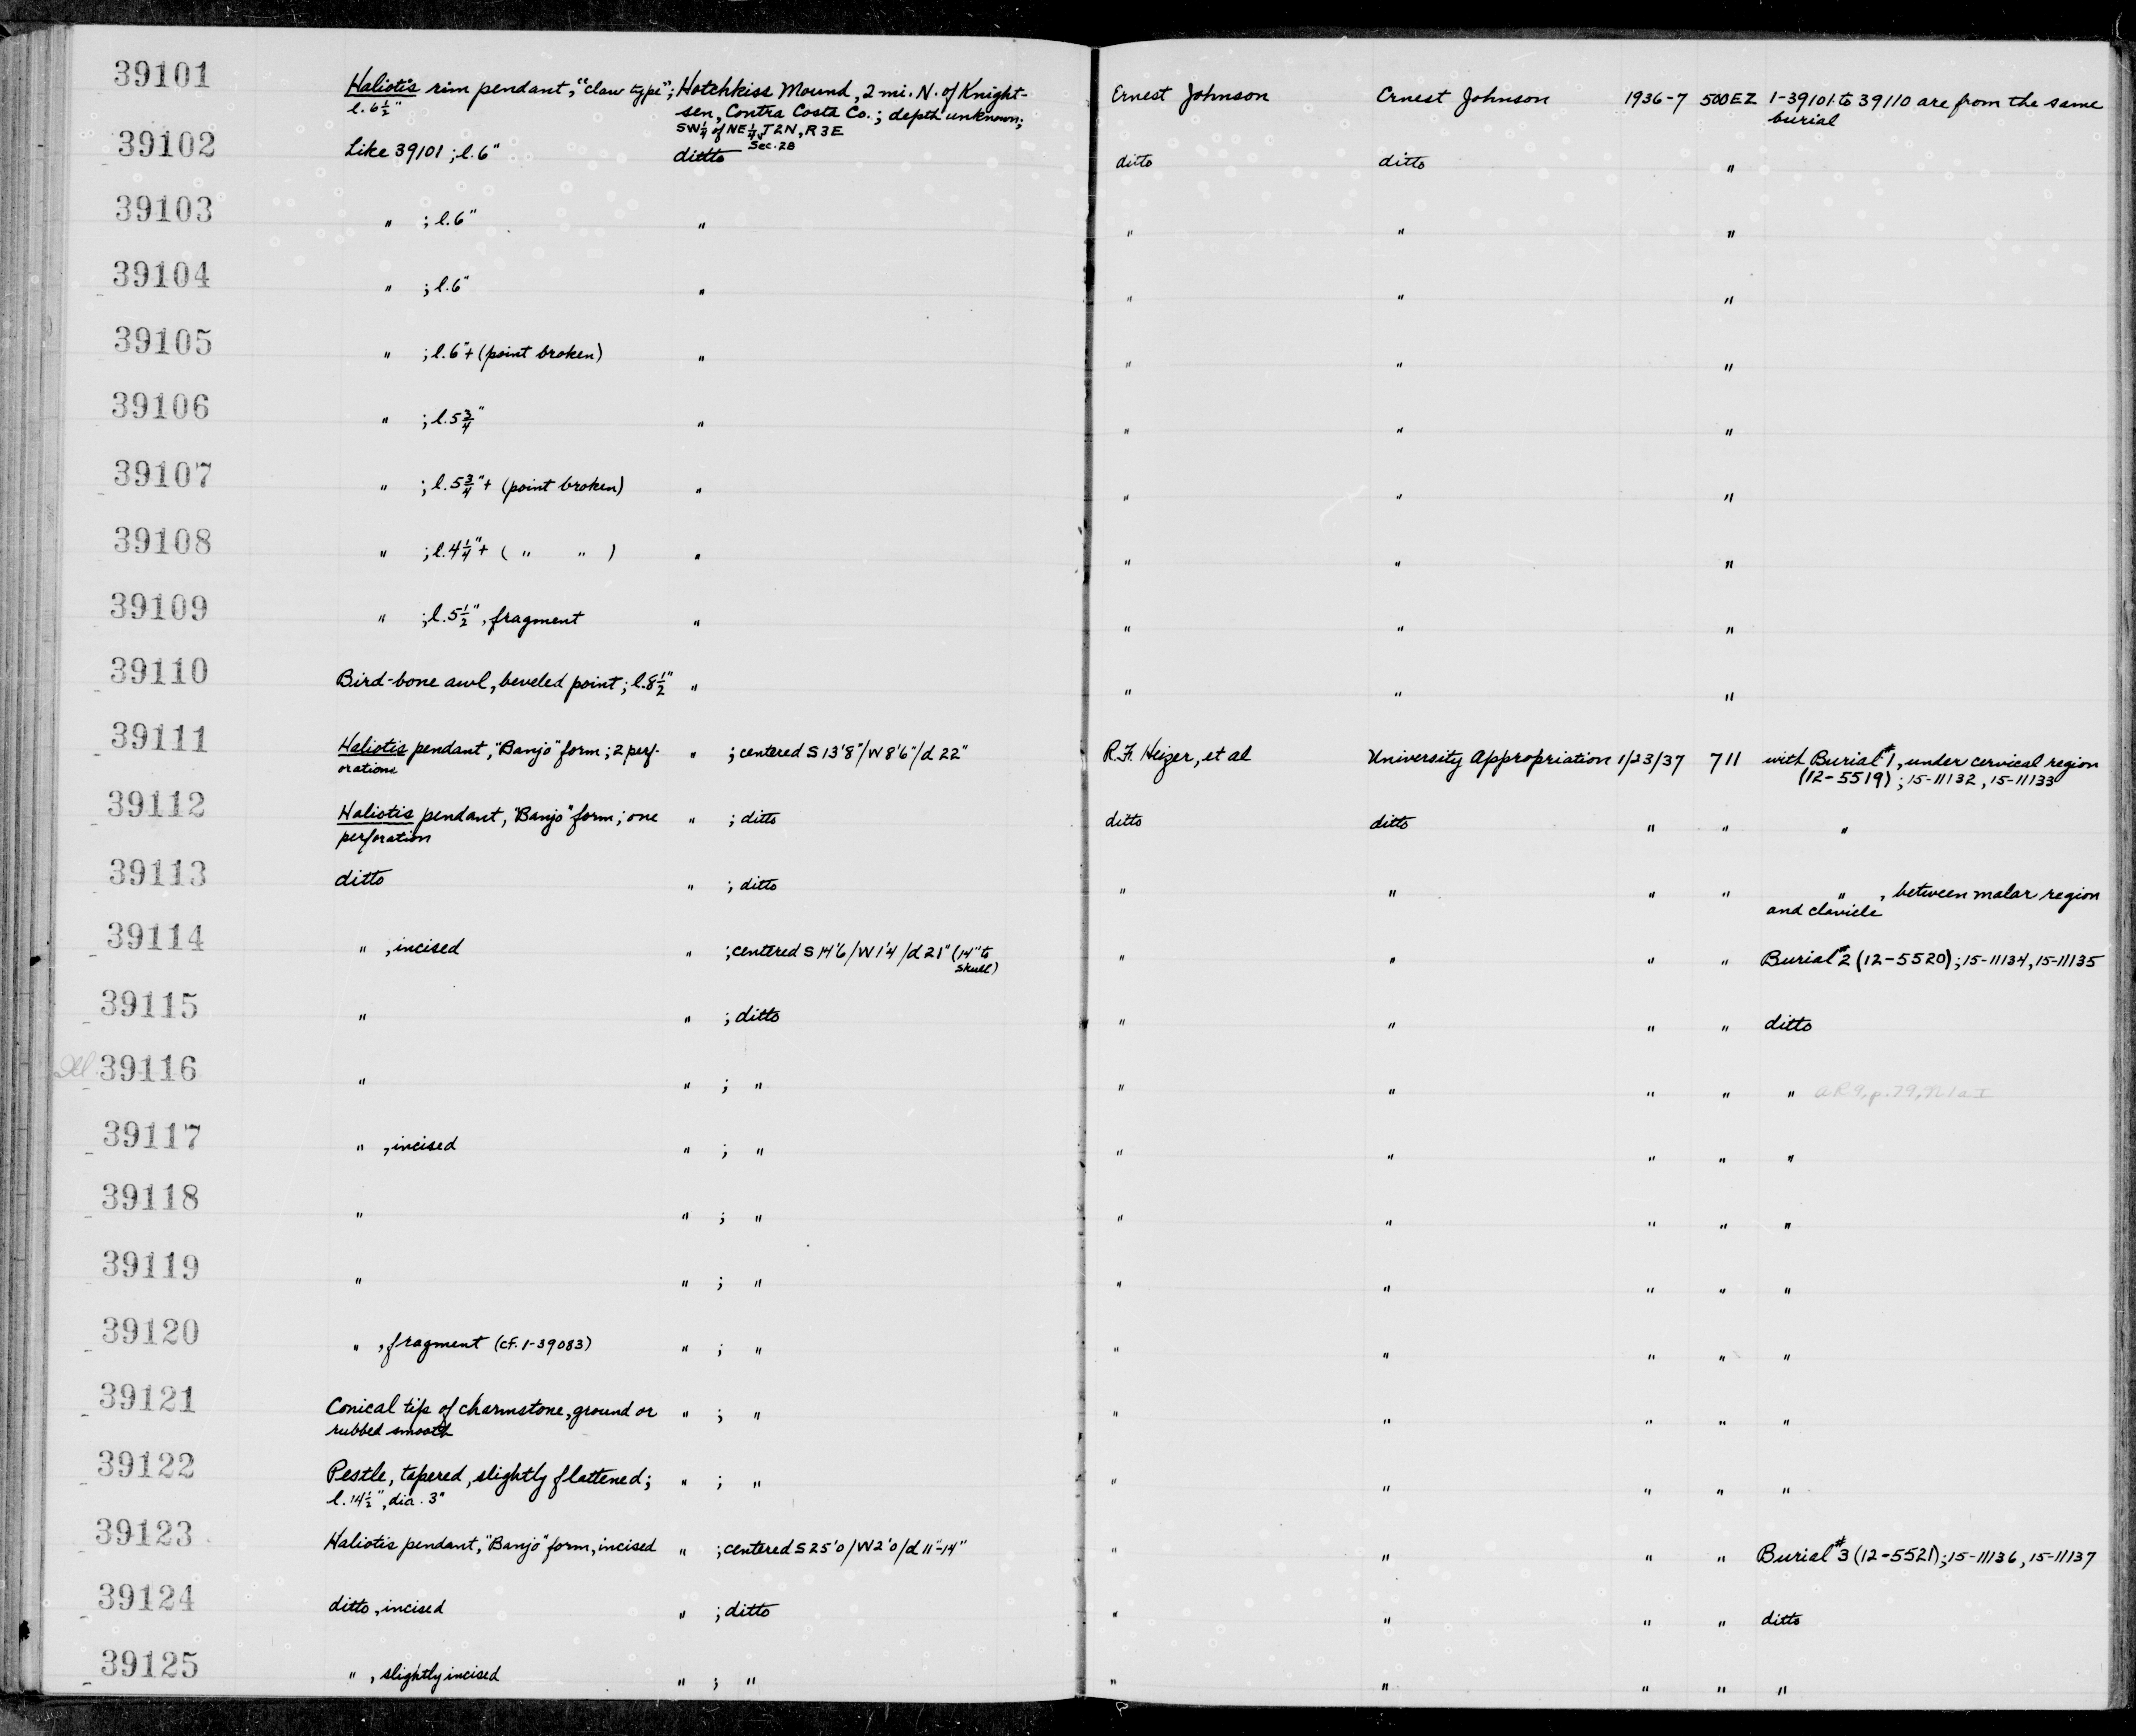 39101 Haliotis rim pendant, "claw type"; Hotchkiss Mound, 2 mi. N. of Knight- Ernest Johnson Ernest Johnson 1936-7 500EZ 1-39101 to 39110 are from the same
l. 6½" sen, Contra Costa Co.; depth unknown; burial
SW¼ of NE¼, T2N, R3E
Sec. 28
39102 Like 39101; l. 6" ditto ditto ditto "
39103 " ; l. 6" " " " "
39104 " ; l. 6" " " " "
39105 " ; l. 6"+ (point broken) " " " "
39106 " ; l. 5¾" " " " "
39107 " ; l. 5¾"+ (point broken) " " " "
39108 " ; l. 4¼"+ ( " " ) " " " "
39109 " ; l. 5½", fragment " " " "
39110 Bird-bone awl, beveled point; l. 8½" " " " "
39111 Haliotis pendant, "Banjo" form; 2 perf- " ; centered S 13'8"/W 8'6"/d 22" R.F. Heizer, et al University Appropriation 1/23/37 711 with Burial #1, under cervical region
orations (12-5519); 15-11132, 15-11133
39112 Haliotis pendant, "Banjo" form; one " ; ditto ditto ditto " " "
perforation
39113 ditto " ; ditto " " " " " , between malar region
and clavicle
39114 " , incised " ; centered S 14'6/W 1'4/d 21" (14" to " " " " Burial #2 (12-5520); 15-11134, 15-11135
skull)
39115 " " ; ditto " " " " ditto
Del. 39116 " " ; " " " " " " AR9, p. 79,
39117 " , incised " ; " " " " " "
39118 " " ; " " " " " "
39119 " " ; " " " " " "
39120 " , fragment (cf. 1-39083) " ; " " " " " "
39121 Conical tip of charmstone, ground or " ; " " " " " "
rubbed smooth
39122 Pestle, tapered, slightly flattened; " ; " " " " " "
l. 14½", dia. 3"
39123 Haliotis pendant, "Banjo" form, incised " ; centered S 25'0/W 2'0/d 11"-14" " " " " Burial #3 (12-5521); 15-11136, 15-11137
39124 ditto, incised " ; ditto " " " " ditto
39125 " , slightly incised " ; " " " " " "